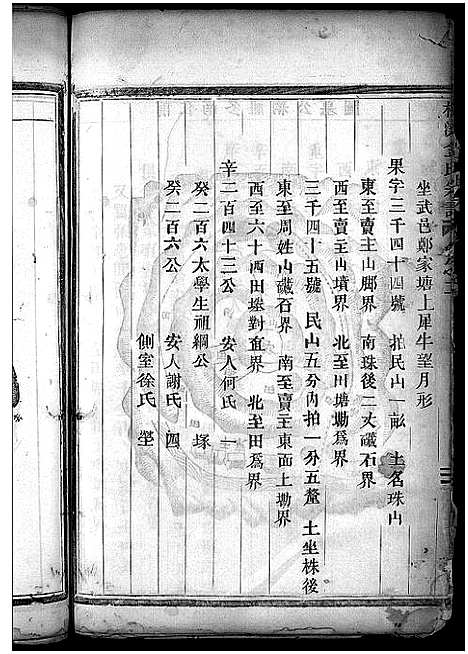 坐武邑鄭家塘上犀牛望月形
果字三千四十四號　拍民山一畝　土名珠山
東至賣主山腳界　南珠後二丈礒石界
西至賣主山墳界　北至川塘塝為界
三千四十五號　民山五分內拍一分五釐　土坐株後
東至周姓山礒石界　南至賣主東面上塝界
西至六十西田塝對直界　北至田為界
辛二百四十三公　安人何氏　一
癸二百六太學生祖綱公　塚
癸二百六公　安人謝氏　四
側室徐氏　塋